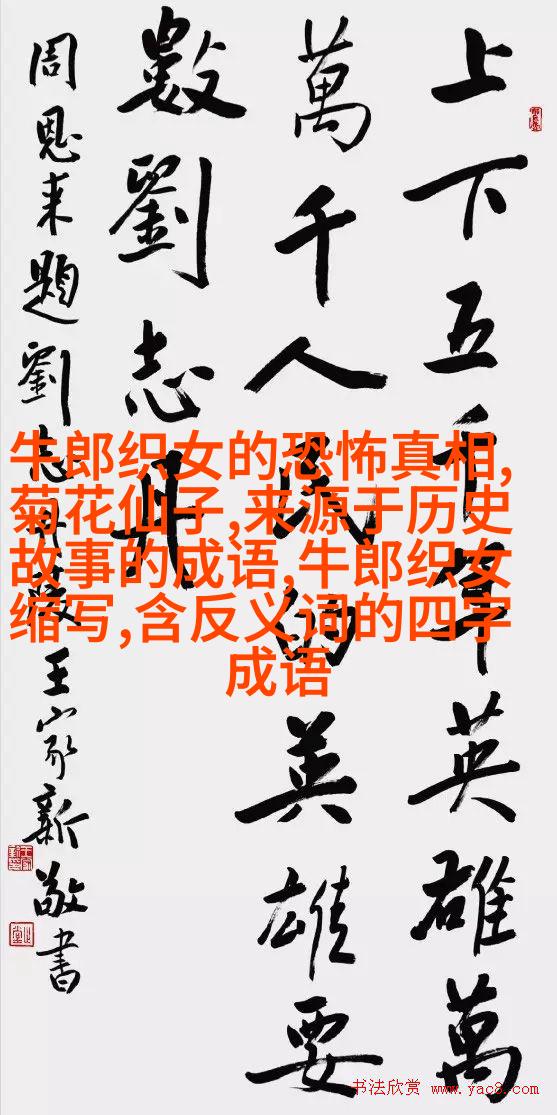 上下五千年英雄萬
萬千人民的英雄要
數劉志丹
周恩来題劉志丹 王家新敬書
牛郎织女的恐怖真相,
菊花仙子,来源于历史
故事的成语,牛郎织女
缩写,含反义词的四字
成语
书法欣赏 www.yac8.com